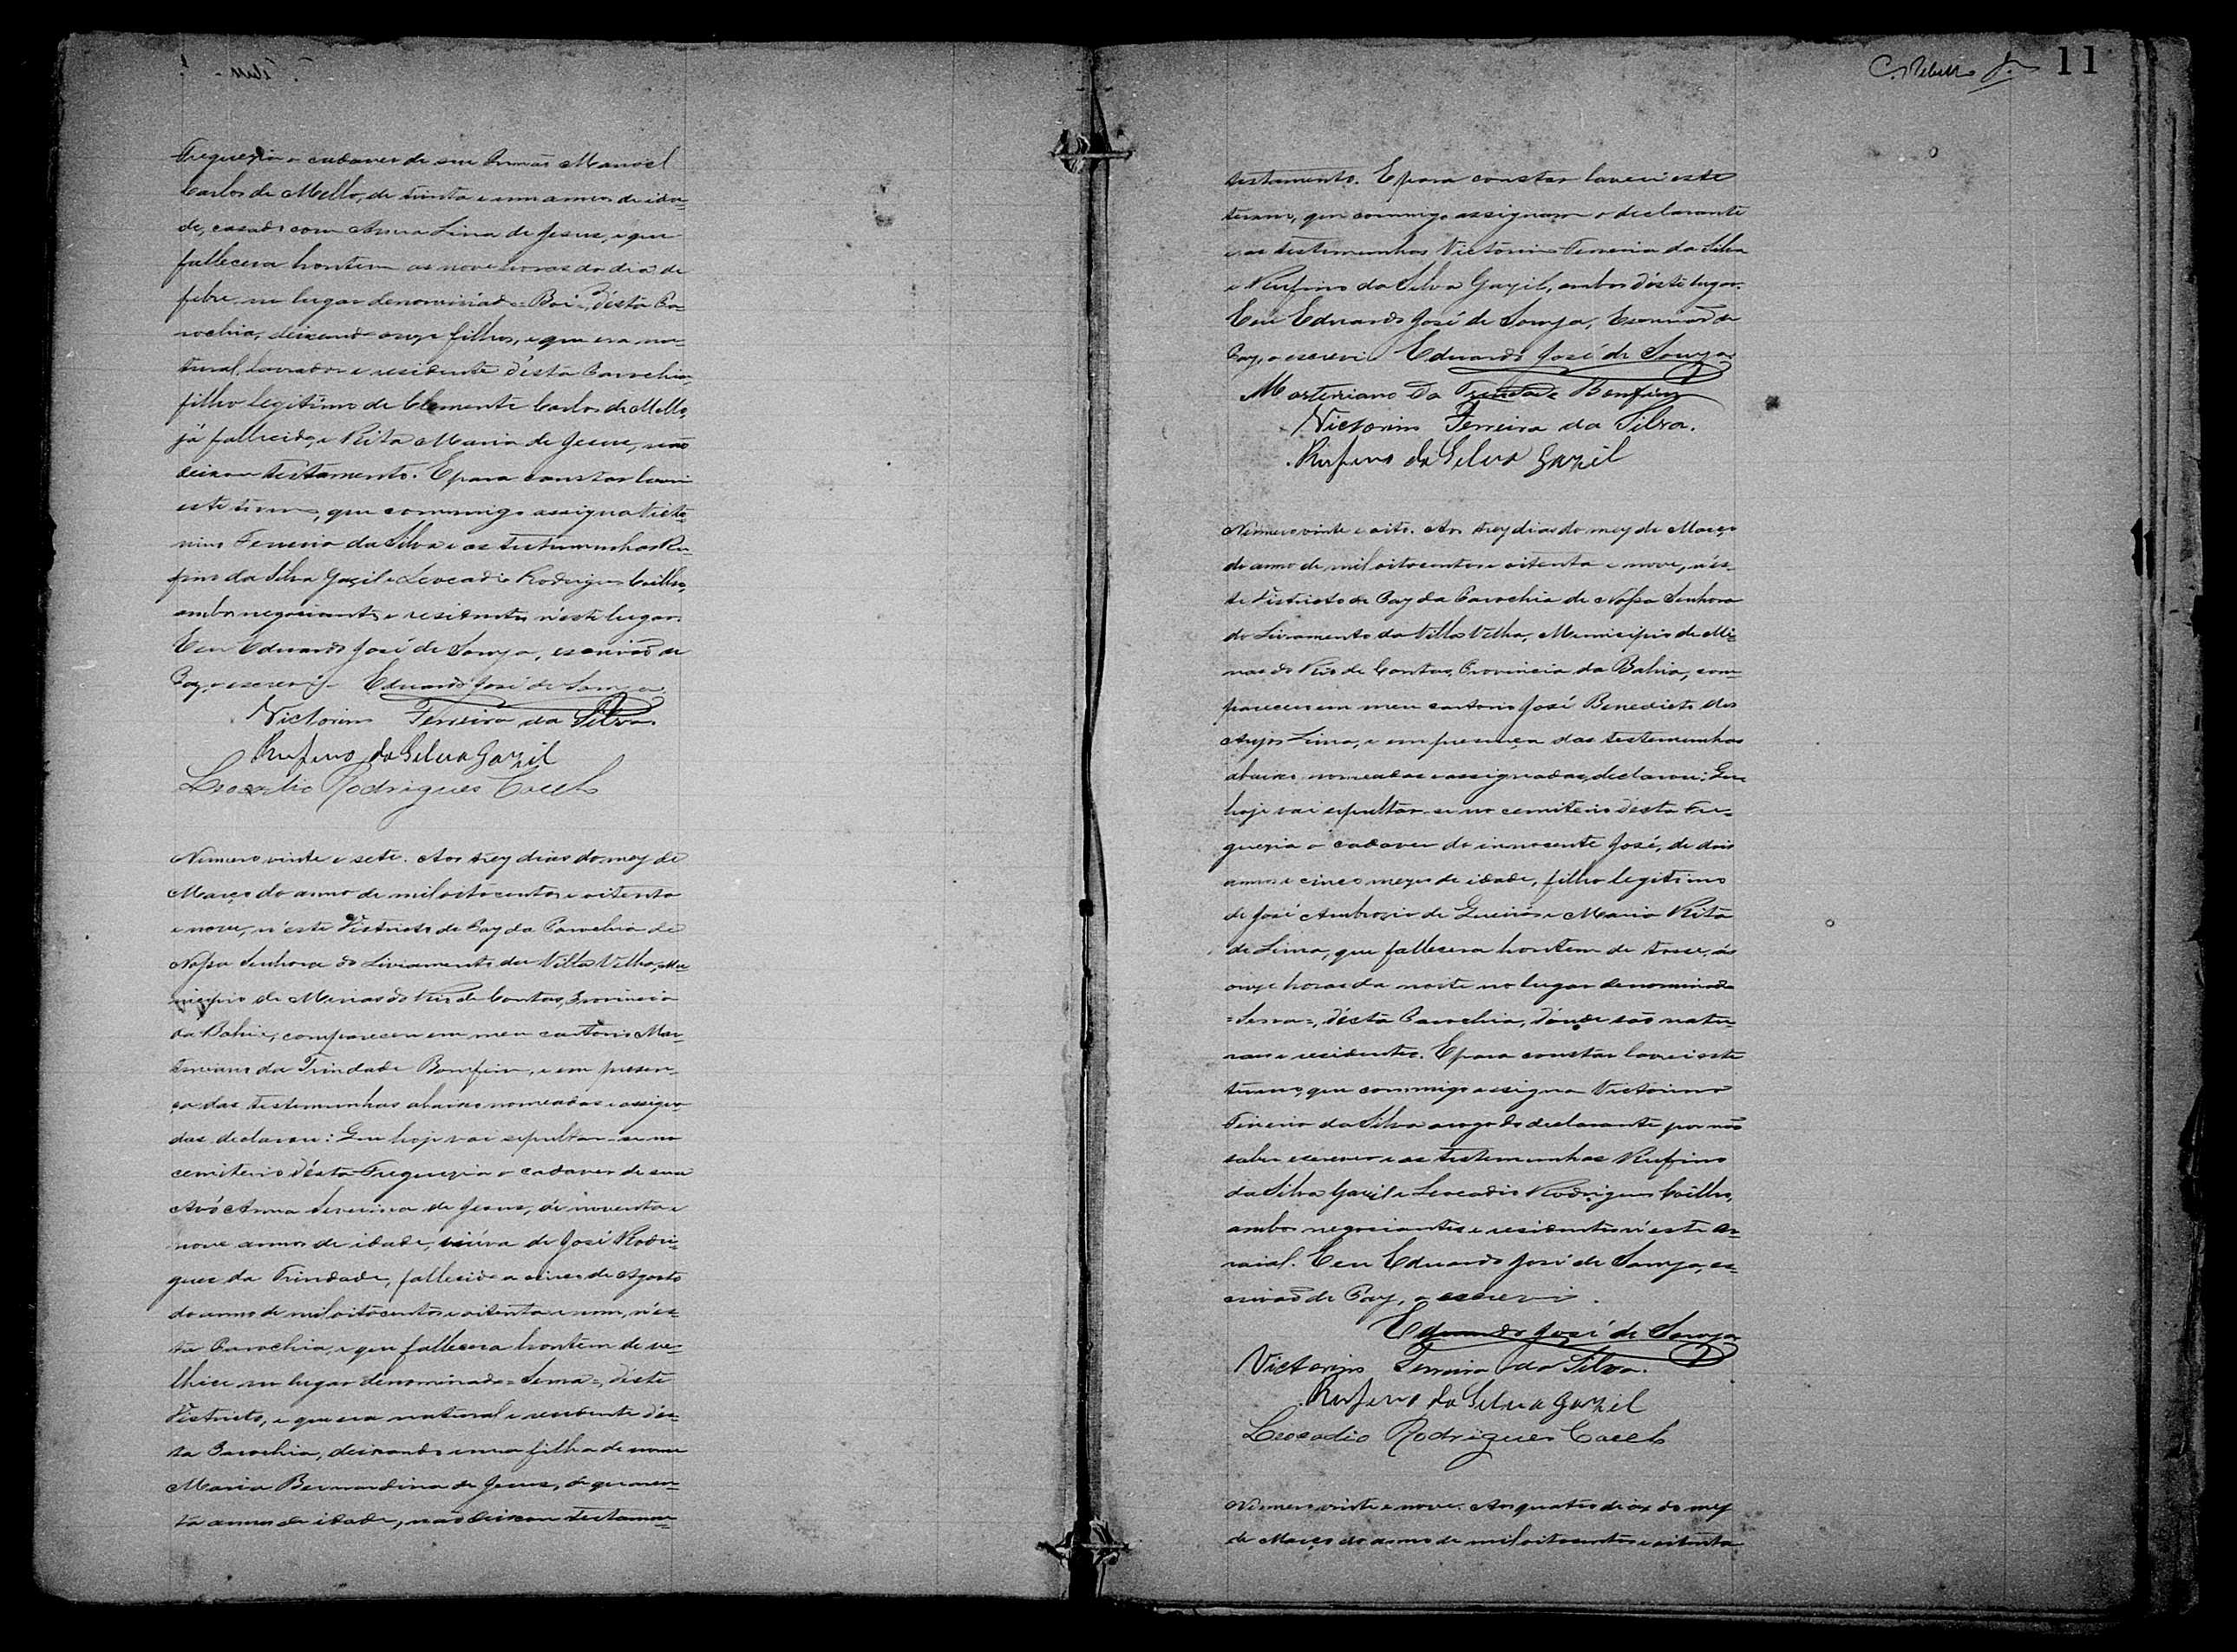 Freguezia o cadaver de seu Irmão Manoel
Carlos de Mello, de trinta e um annos de ida-
de, casado com Anna Lina de Jesus, e que
fallecera hontem as nove horas do dia de
febre no lugar denominado = Boi =, d'ésta Pa-
rochia, deixando onze filhos, e que era na-
tural, lavrador e residente d'ésta Parochia,
filho legitimo de Clemente Carlos de Mello,
já fallecido, e Rita Maria de Jesus, não
deixou testamento. E para constar lavrei
este termo, que commigo assigna Victo-
rino Ferreira da Silva e as testemunhas Ru-
fino da Silva Gazil e Leocadio Rodrigues Coelho,
ambos negociantes e residentes n'este lugar.
Eu Eduardo José de Souza, escrivão de
Paz, o escrevi. Eduardo José de Souza
Victorino Ferreira da Silva
Rufino da Silva Gazil
Leocadio Rodrigues Coelho
Numero vinte e sete. Aos trez dias do mez de
Março do anno de mil oitocentos e oitenta
e nove, n'este Districto de Paz da Parochia de
Nossa Senhora do Livramento da Villa Velha, Mu-
nicipio de Minas do Rio de Contas, Provincia
da Bahia, compareceu em meu cartorio Mar-
teriano da Trindade Bomfim, e em presen-
ça das testemunhas abaixo nomeadas e assigna-
das declarou: Que hoje vai sepultar-se no
cemiterio d'ésta Freguezia o cadaver de sua
Avó Anna Severina de Jesus, de noventa e
nove annos de idade, viúva de José Rodri-
gues da Trindade, fallecido a cinco de Agosto
do anno de mil oitocentos e oitenta e um, n'és-
ta Parochia, e que fallecera hontem de ve-
lhice no lugar denominado = Serra =, d'este
Districto, e que era natural e residente d'és-
ta Parochia, deixando uma filha de nome
Maria Bernardina de Jesus, de quaren-
ta annos de idade, não deixou testamen-
C. Rebello Jr. 11
testamento. E para constar lavrei este
termo, que commigo assignam o declarante
e as testemunhas Victorino Ferreira da Silva
e Rufino da Silva Gazil, ambos d'éste lugar.
Eu Eduardo José de Souza, Escrivão de
Paz, o escrevi. Eduardo José de Souza
Marteriano da Trindade Bomfim
Victorino Ferreira da Silva.
Rufino da Silva Gazil
Numero vinte e oito. Aos trez dias do mez de Março
do anno de mil oitocentos e oitenta e nove, n'es-
te Districto de Paz da Parochia de Nossa Senhora
do Livramento da Villa Velha, Municipio de Mi-
nas do Rio de Contas, Provincia da Bahia, com-
pareceu em meu cartorio José Benedicto dos
Anjos Lima, e em presença das testemunhas
abaixo nomeadas e assignadas, declarou: Que
hoje vai sepultar-se no cemiterio d'ésta Fre-
guezia o cadaver do innocente José, de dois
annos e cinco mezes de idade, filho legitimo
de José Ambrozio de Queirós e Maria Rita
de Lima, que fallecera hontem de tosse, ás
onze horas da noite no lugar denominado
= Serra =, d'ésta Parochia, d'onde são natu-
raes e residentes. E para constar lavrei este
termo, que commigo assigna Victorino
Ferreira da Silva a rogo do declarante por não
saber escrever e as testemunhas Rufino
da Silva Gazil e Leocadio Rodrigues Coelho,
ambos negociantes e residentes n'este Ar-
raial. Eu Eduardo José de Souza, es-
crivão de Paz, o escrevi.
Eduardo José de Souza
Victorino Ferreira da Silva.
Rufino da Silva Gazil
Leocadio Rodrigues Coelho
Numero vinte e nove. Aos quatro dias do mez
de Março do anno de mil oitocentos e oitenta